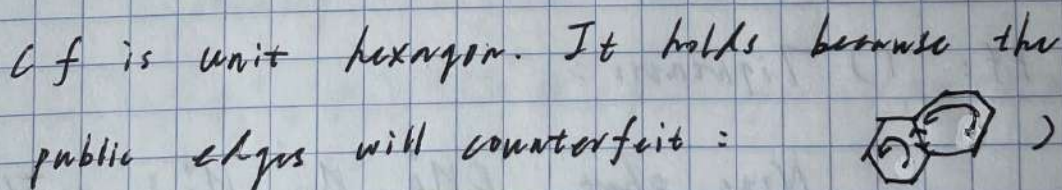 ( f is unit hexagon. It holds because the
public edges will counterfeit : )